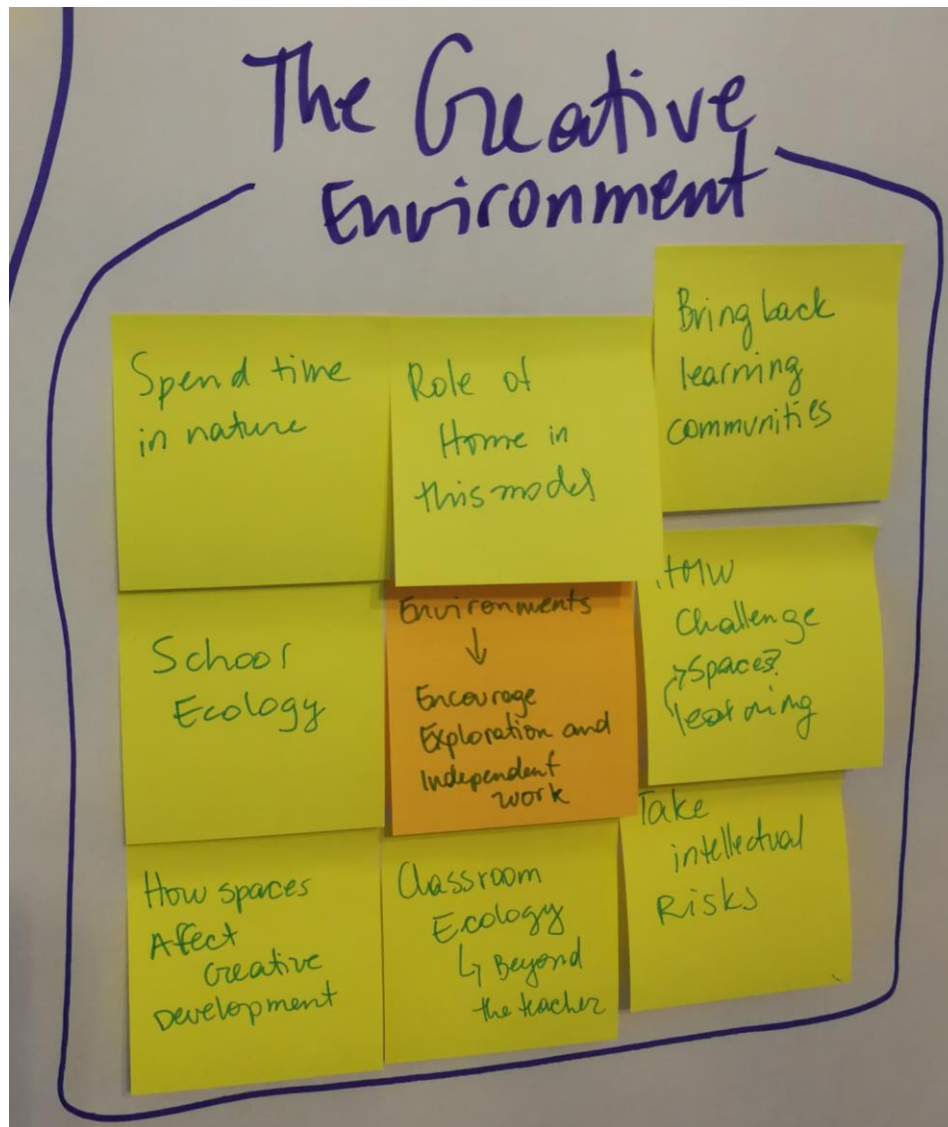 The Creative
Environment
Spend time
in nature
Role of
Home in
this model
Bring back
learning
communities
School
Ecology
Environments
↓
Encourage
Exploration and
Independent
work
Challenge
Spaces?
learning
How spaces
Affect
creative
Development
Classroom
Ecology
↳ Beyond
the teacher
Take
intellectual
Risks